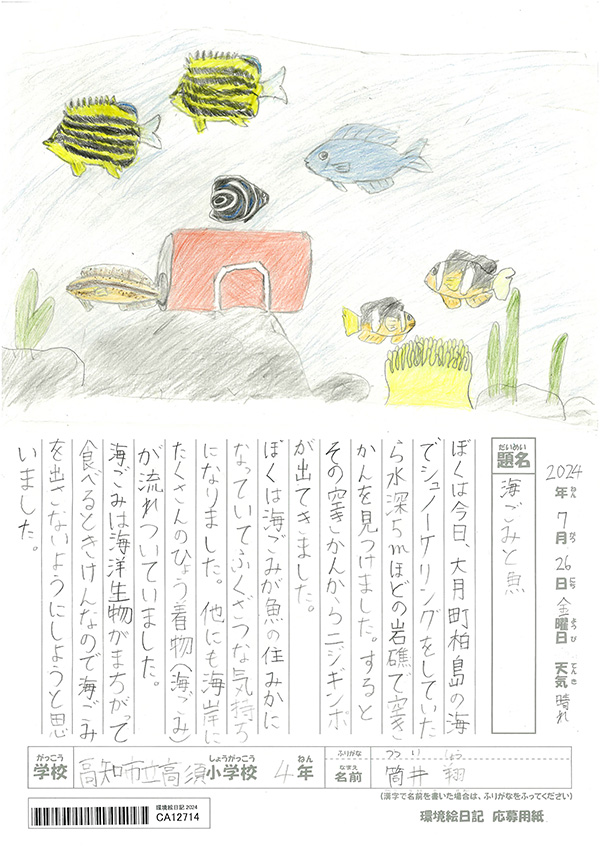 2024年7月26日金曜日 天気晴れ
ねん がつ にち ようび てんき
だいめい
題名
海ごみと魚
ぼくは今日、大月町柏島の海
でシュノーケリングをしていた
ら水深5mほどの岩礁で空き
かんを見つけました。すると
その空きかんからニジギンポ
が出てきました。
ぼくは海ごみが魚の住みかに
なっていてふくざつな気持ち
になりました。他にも海岸に
たくさんのひょう着物(海ごみ)
が流れついていました。
海ごみは海洋生物がまちがって
食べるときけんなので海ごみ
を出さないようにしようと思
いました。
がっこう
学校
高知市立高須
しょうがっこう
小学校
4年
ねん
ふりがな
つつい しょう
なまえ
名前
筒井 翔
(漢字で名前を書いた場合は、ふりがなをふってください)
環境絵日記2024
CA12714
環境絵日記 応募用紙